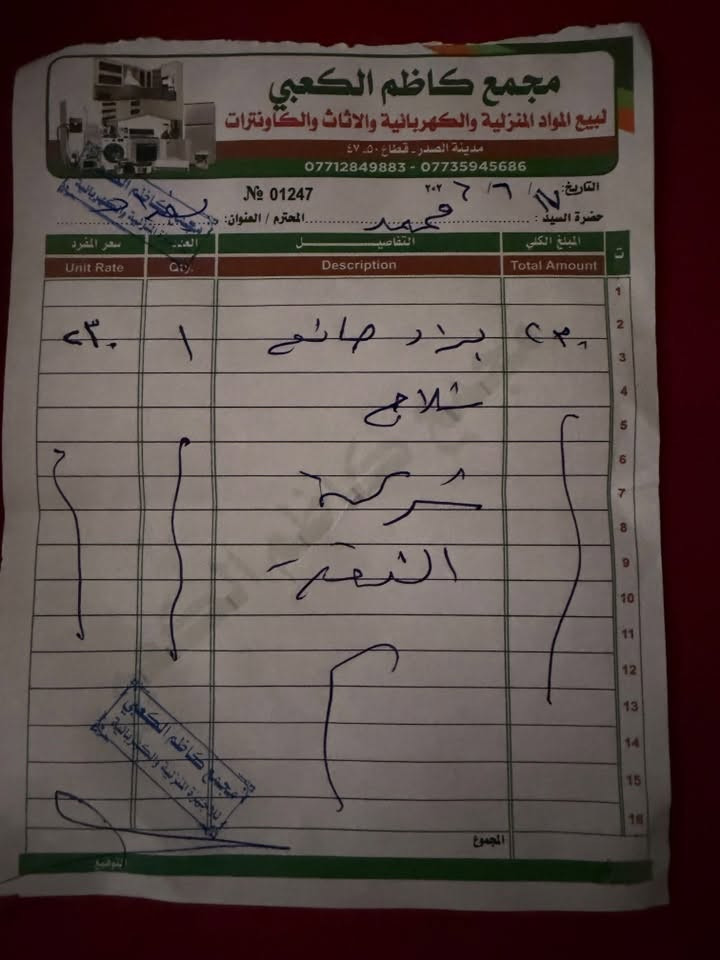 مجمع كاظم الكعبي
لبيع المواد المنزلية والكهربائية والاثاث والكاونترات
مدينة الصدر - قطاع ٥٠ - ٤٧
07712849883 - 07735945686
التاريخ: ١٧ / ٦ / ٢٠٢٦
№ 01247
حضرة السيد: محمد المحترم / العنوان:
ت المبلغ الكلي التفاصيل العدد سعر المفرد
Total Amount Description Qty. Unit Rate
1
2
٢٣٠ براد صانع ١ ٢٣٠
3
4
شلاج
5
6
شركة
7
8
9
10
11
12
13
14
15
16
المجموع
التوقيع
مجمع كاظم الكعبي
للاجهزة المنزلية والكهربائية